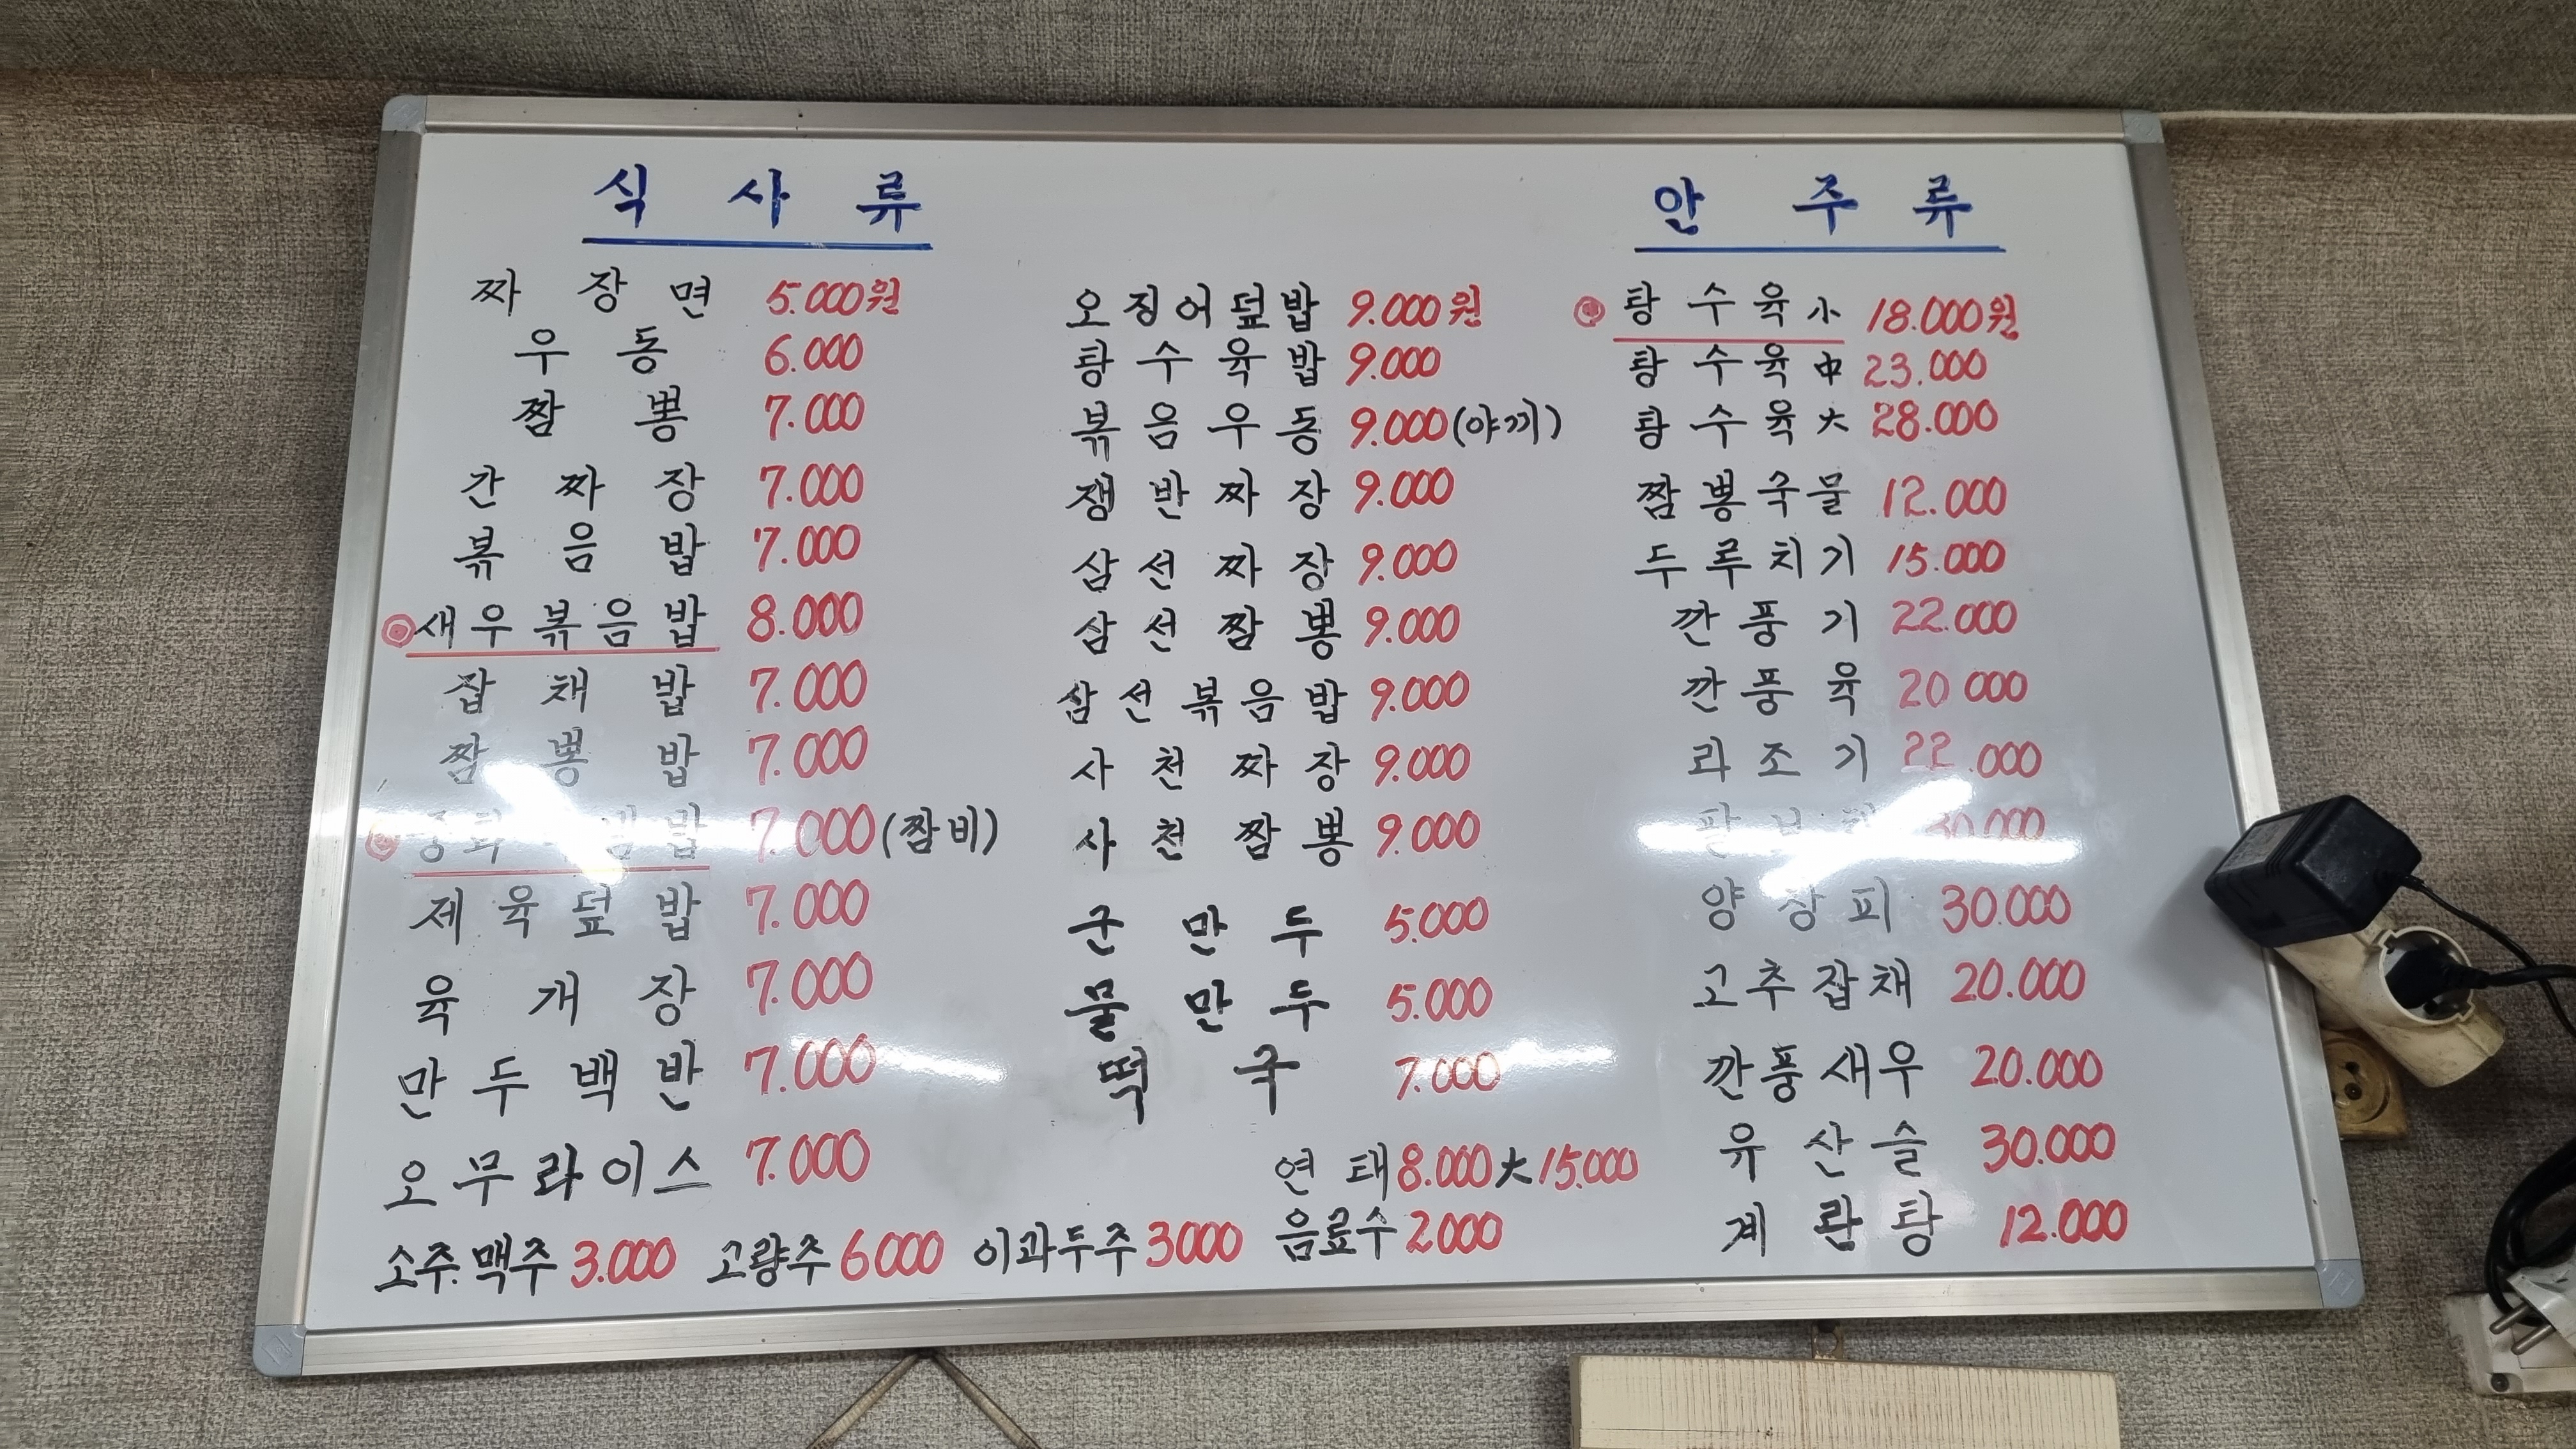 식사류
짜장면 5.000원
우동 6.000
짬뽕 7.000
간짜장 7.000
볶음밥 7.000
새우볶음밥 8.000
잡채밥 7.000
짬뽕밥 7.000
7.000(짬비)
제육덮밥 7.000
육개장 7.000
만두백반 7.000
오무라이스 7.000
오징어덮밥 9.000원
탕수육밥 9.000
볶음우동 9.000(야끼)
쟁반짜장 9.000
삼선짜장 9.000
삼선짬뽕 9.000
삼선볶음밥 9.000
사천짜장 9.000
사천짬뽕 9.000
군만두 5.000
물만두 5.000
떡국 7.000
안주류
탕수육小 18.000원
탕수육中 23.000
탕수육大 28.000
짬뽕국물 12.000
두루치기 15.000
깐풍기 22.000
깐풍육 20 000
라조기 22.000
30.000
양장피 30.000
고추잡채 20.000
깐풍새우 20.000
유산슬 30.000
계란탕 12.000
연태 8.000 大 15.000
소주.맥주 3.000 고량주 6000 이과두주 3000 음료수 2000